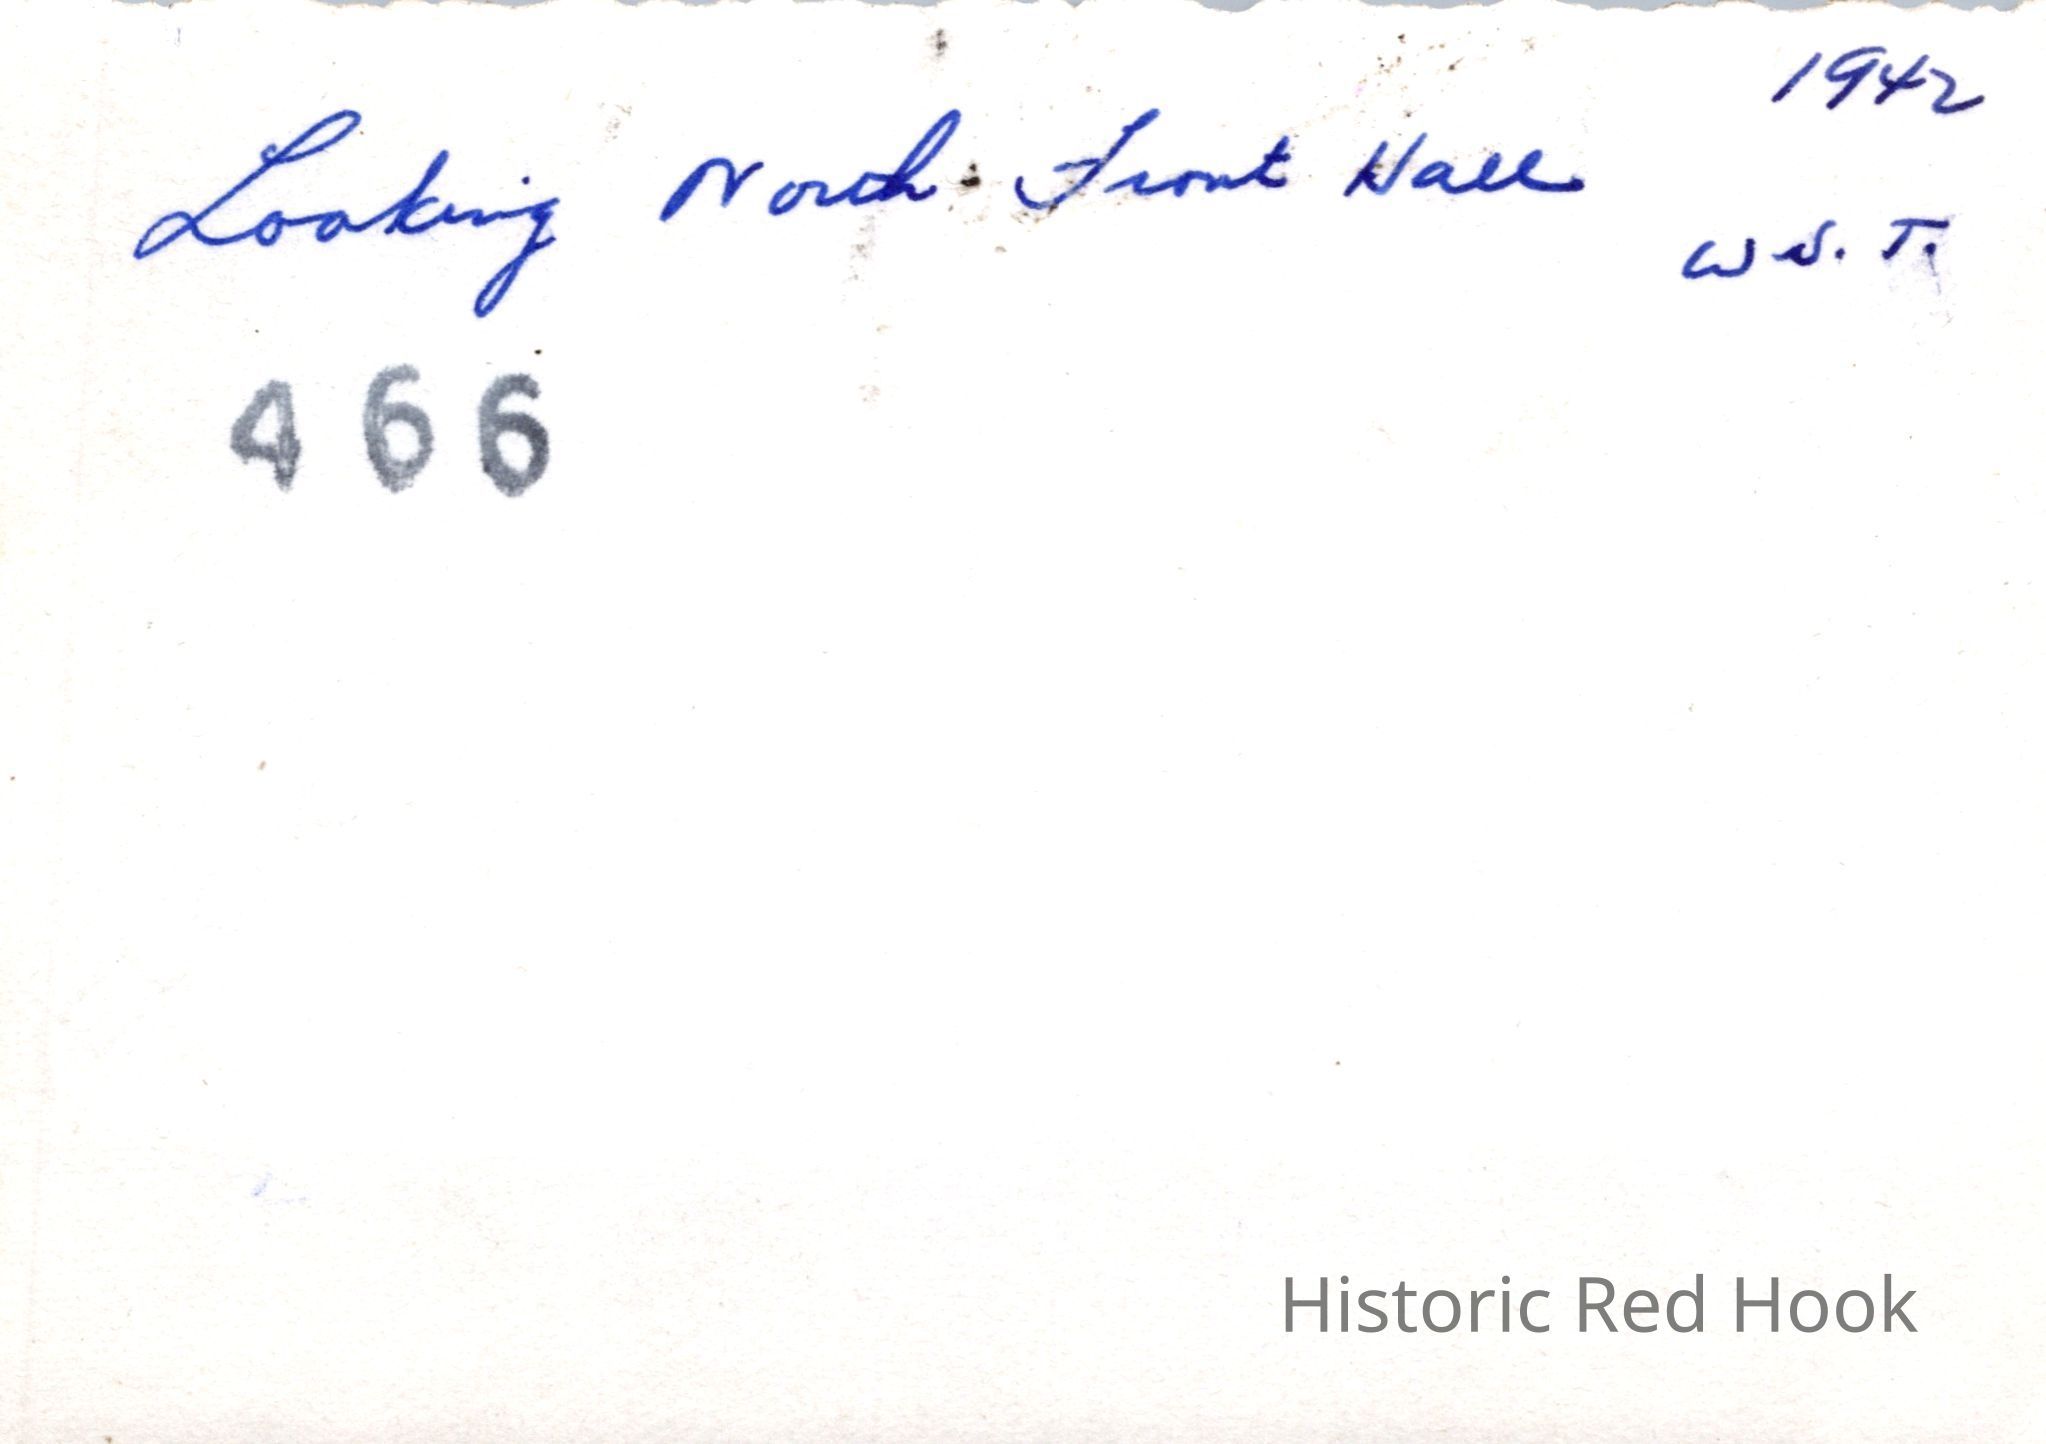 1942
Looking North Front Hall
W.S.T.
466
Historic Red Hook